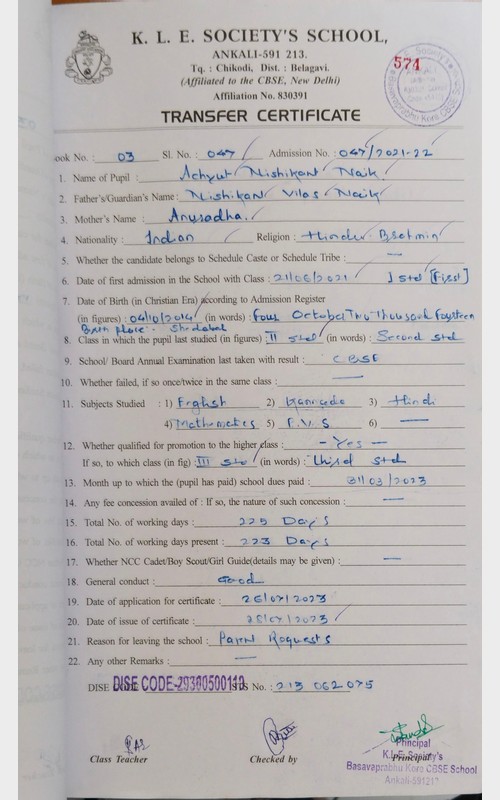 K. L. E. SOCIETY'S SCHOOL,
ANKALI-591 213.
Tq. : Chikodi, Dist. : Belagavi.
(Affiliated to the CBSE, New Delhi)
Affiliation No. 830391
571
TRANSFER CERTIFICATE
ook No. : 03 Sl. No. : 047 Admission No. : 047/2021-22
1. Name of Pupil : Achyut Nishikant Naik
2. Father's/Guardian's Name : Nishikant Vilas Naik
3. Mother's Name : Anusadha
4. Nationality : Indian Religion : Hindu
5. Whether the candidate belongs to Schedule Caste or Schedule Tribe : —
6. Date of first admission in the School with Class : 21/06/2021 I std [First]
7. Date of Birth (in Christian Era) according to Admission Register
(in figures) : 04/10/2014 (in words) : Four October Two Thousand Fourteen
Birth place.
8. Class in which the pupil last studied (in figures) II std (in words) : Second std
9. School/ Board Annual Examination last taken with result : CBSE
10. Whether failed, if so once/twice in the same class : —
11. Subjects Studied : 1) English 2) Kannada 3) Hindi
4) Mathematics 5) E.V.S. 6) —
12. Whether qualified for promotion to the higher class : - Yes -
If so, to which class (in fig) : III std (in words) : Third std
13. Month up to which the (pupil has paid) school dues paid : 31/03/2023
14. Any fee concession availed of : If so, the nature of such concession : —
15. Total No. of working days : 225 Days
16. Total No. of working days present : 223 Days
17. Whether NCC Cadet/Boy Scout/Girl Guide(details may be given) : —
18. General conduct : Good
19. Date of application for certificate : 26/07/2023
20. Date of issue of certificate : 26/07/2023
21. Reason for leaving the school : Parent Requests
22. Any other Remarks : —
DISE DISE CODE-29300500110 STS No. : 213 062 075
Class Teacher Checked by Principal
Principal
K.L.E. Society's
Basavaprabhu Kore CBSE School
Ankali-591213